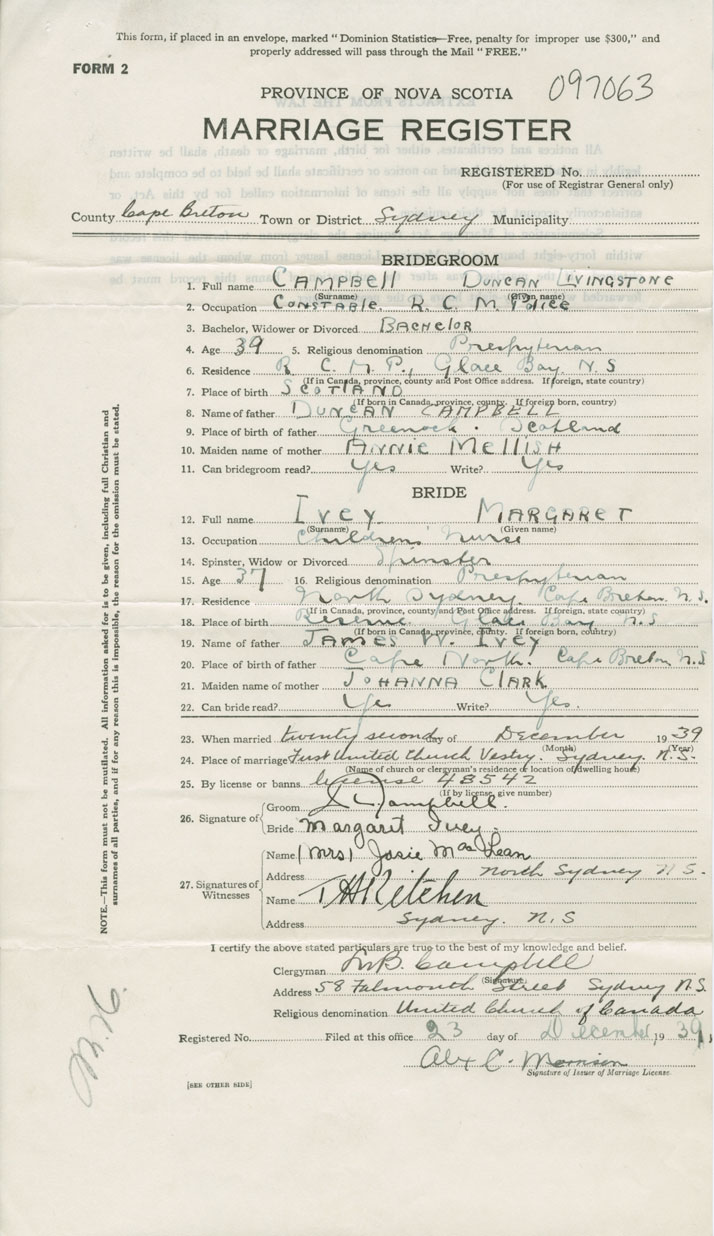 This form, if placed in an envelope, marked "Dominion Statistics—Free, penalty for improper use $300," and
properly addressed will pass through the Mail "FREE."
FORM 2
PROVINCE OF NOVA SCOTIA 097063
MARRIAGE REGISTER
REGISTERED No.
(For use of Registrar General only)
County Cape Breton Town or District Sydney Municipality
BRIDEGROOM
1. Full name CAMPBELL DUNCAN LIVINGSTONE
(Surname) (Given name)
2. Occupation CONSTABLE, R. C. M. Police
3. Bachelor, Widower or Divorced BACHELOR
4. Age 39 5. Religious denomination Presbyterian
6. Residence R. C. M. P., Glace Bay, N. S
(If in Canada, province, county and Post Office address. If foreign, state country)
7. Place of birth SCOTLAND
(If born in Canada, province, county. If foreign born, country)
8. Name of father DUNCAN CAMPBELL
9. Place of birth of father Greenock. Scotland
10. Maiden name of mother ANNIE MELLISH
11. Can bridegroom read? Yes Write? Yes
BRIDE
12. Full name IVEY MARGARET
(Surname) (Given name)
13. Occupation Childrens' Nurse
14. Spinster, Widow or Divorced Spinster
15. Age 37 16. Religious denomination Presbyterian
17. Residence North Sydney, Cape Breton. N. S.
(If in Canada, province, county and Post Office address. If foreign, state country)
18. Place of birth Reserve Glace Bay N. S
(If born in Canada, province, county. If foreign born, country)
19. Name of father JAMES W. IVEY
20. Place of birth of father Cape North. Cape Breton N. S
21. Maiden name of mother JOHANNA CLARK
22. Can bride read? Yes Write? Yes.
23. When married twenty second day of December 1939
(Month) (Year)
24. Place of marriage First United Church Vestry. Sydney. N. S.
(Name of church or clergyman's residence or location of dwelling house)
25. By license or banns license 48542
(If by license, give number)
26. Signature of Groom Campbell.
Bride Margaret Ivey.
27. Signatures of Witnesses
Name (Mrs) Josie MacLean
Address North Sydney N. S.
Name T H Kitchen
Address Sydney. N. S
I certify the above stated particulars are true to the best of my knowledge and belief.
Clergyman Campbell
(Signature)
Address 58 Falmouth Street Sydney N. S.
Religious denomination United Church of Canada
Registered No. Filed at this office 23 day of December 1939
Alex C. Morrison
Signature of Issuer of Marriage License.
[SEE OTHER SIDE]
NOTE.—This form must not be mutilated. All information asked for is to be given, including full Christian and
surnames of all parties, and if for any reason this is impossible, the reason for the omission must be stated.